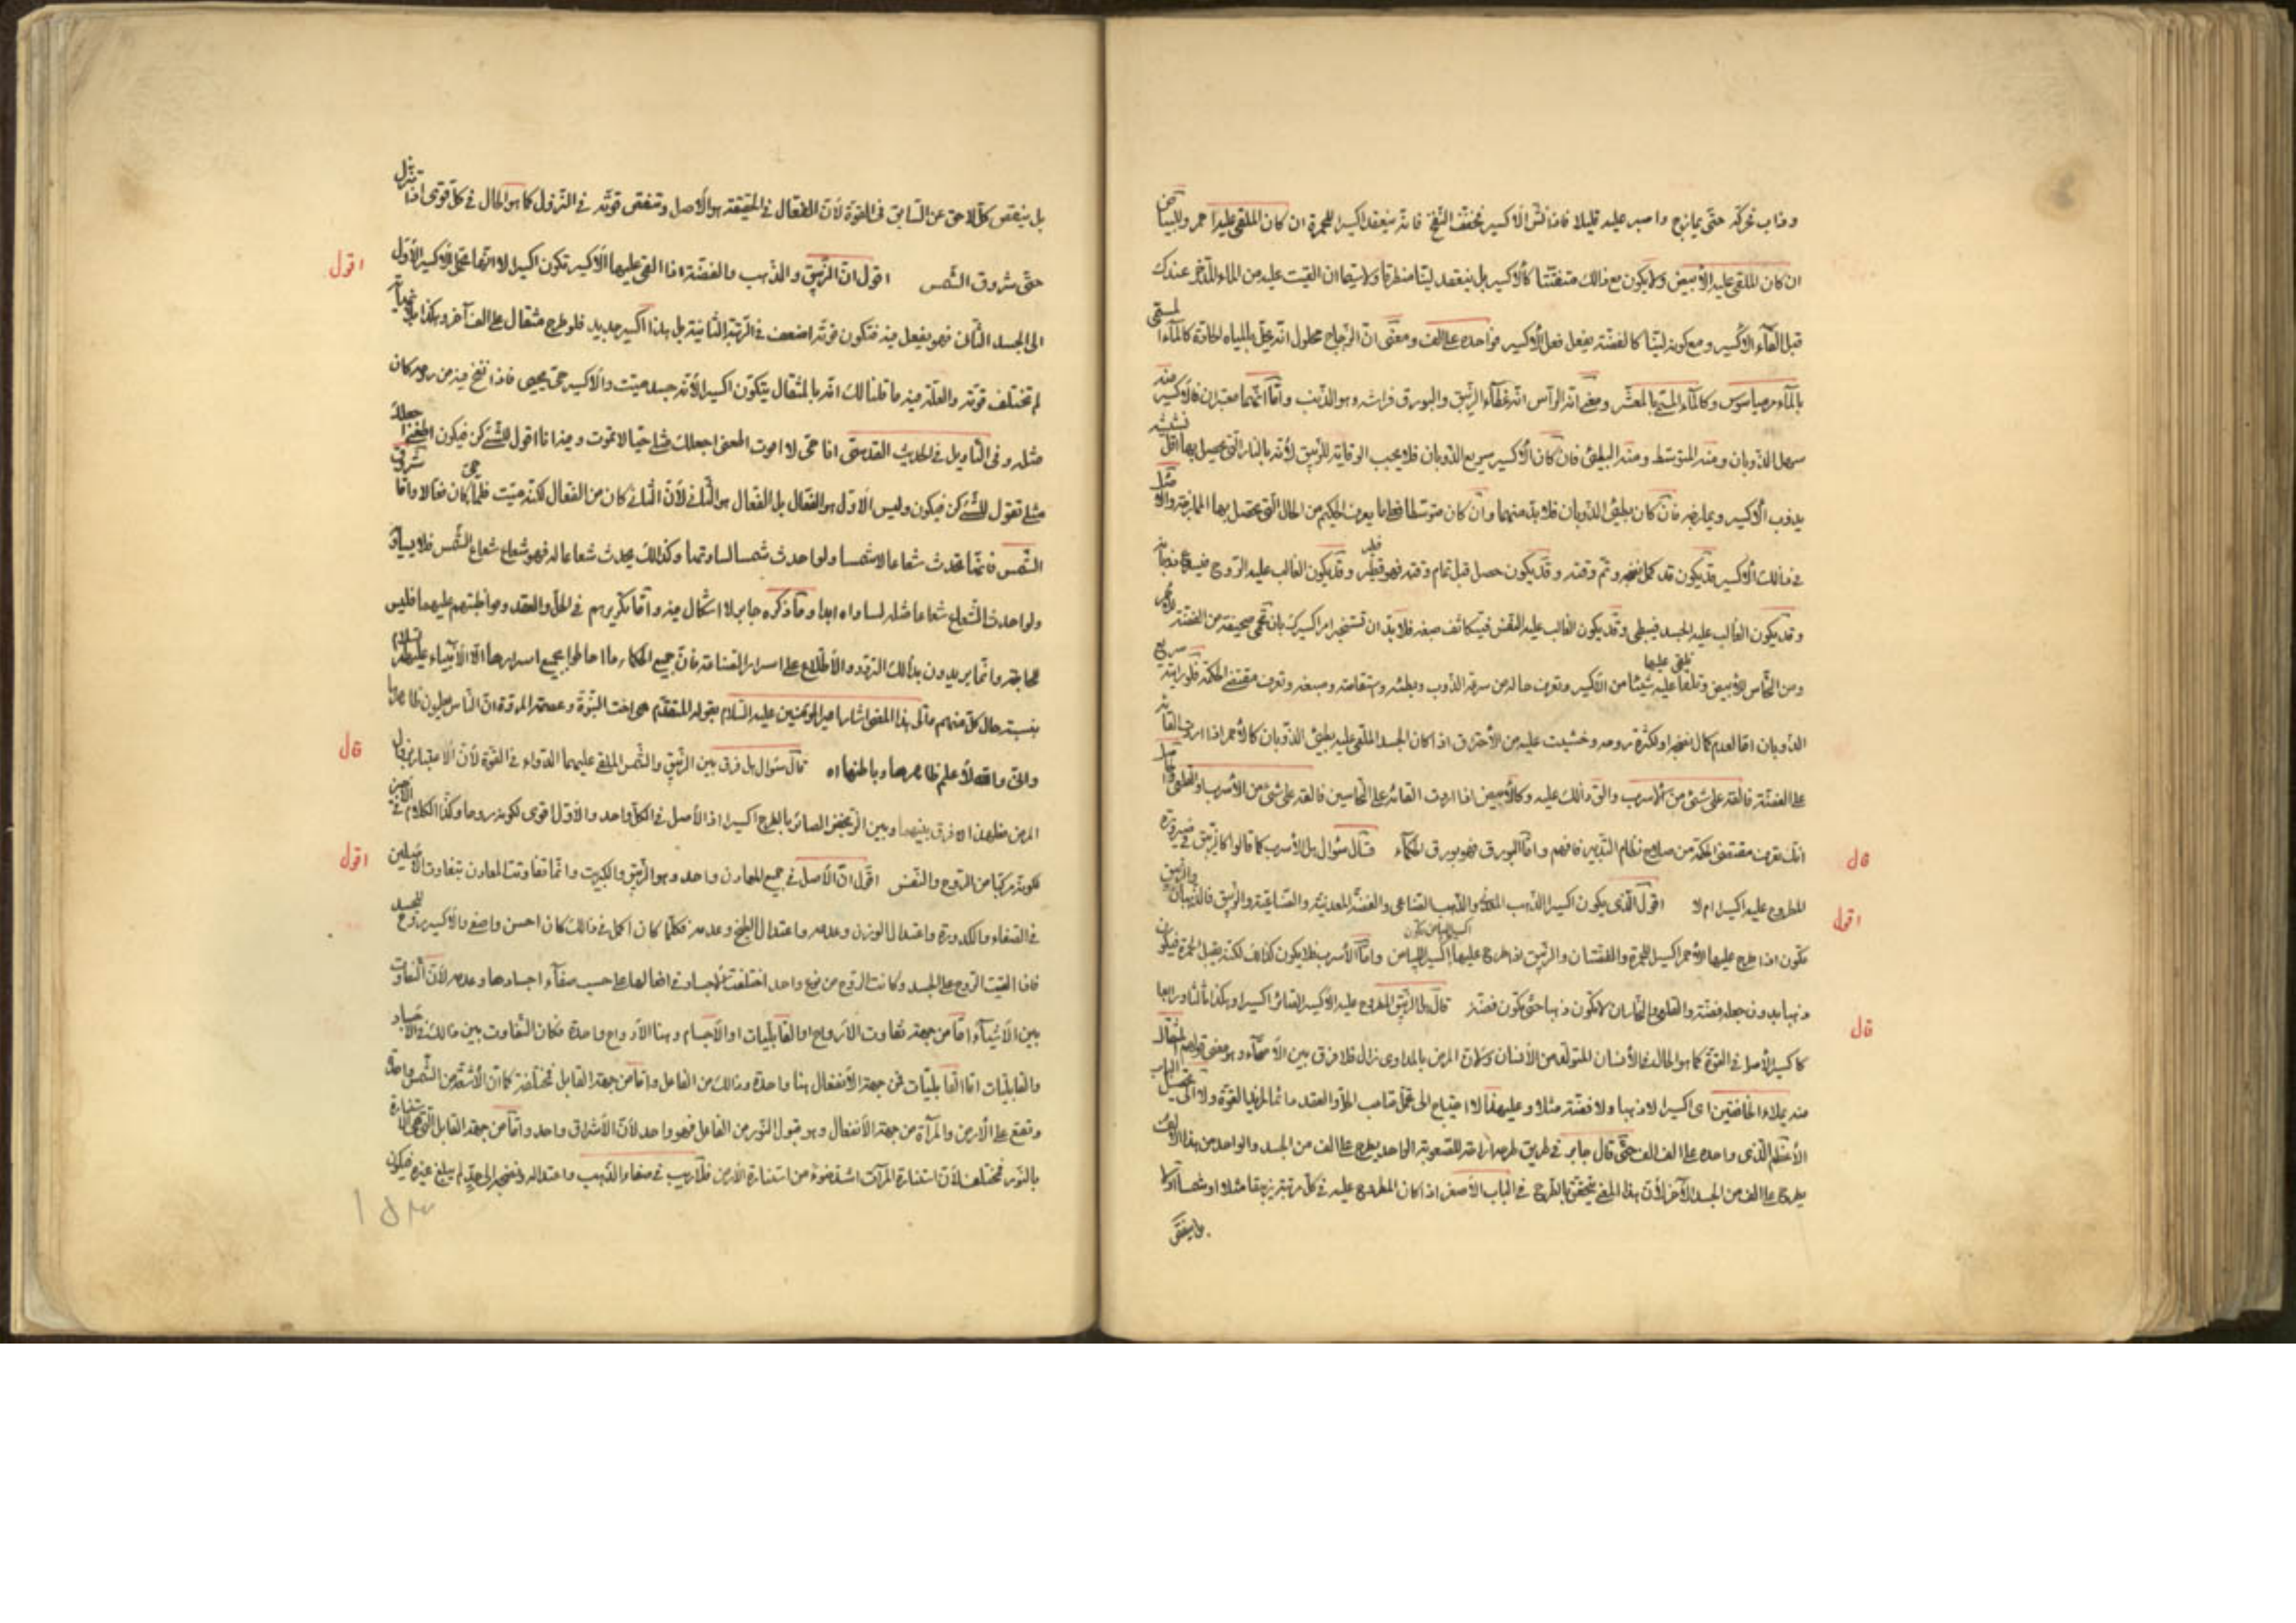 وذاب تحركه حتى يمازج واصبر عليه قليلا فان نش الاكسير فخفف النفخ فانه ينعقد اكسيرا للحمرة ان كان الملقى عليه احمر وللبياض
ان كان الملقى عليه الأبيض ولا يكون مع ذلك متفتتا كالاكسير بل ينعقد لينا منطرقا ولا سيما ان القيت عليه من الماء المدخر عندك
قبل القاء الاكسير ومع كونه لينا كالفضة يفعل فعل الأكسير فواحده على الف ومعنى ان الزجاج محلول انه يحل بالمياه الحادة كالماء المسمى
بالماء وكالماء المسمى بالمعشر ومعنى انه الرأس انه غطاء الزيبق والبورق فراشه وهو الذهب واما انهما معتبران فالاكسير منه
سهل الذوبان ومنه المتوسط ومنه البطئ فان كان الأكسير سريع الذوبان فلا يجب الوقاية للزيبق لأنه بالنار التي يحصل بها اقل
يذوب الأكسير ويمازجه فان كان بطئ الذوبان فلابد منهما وان كان متوسطا فعلى ما يعرف الحكيم من الحال التي تحصل بها الممازجة والا
في ذلك الأكسير قد يكون قد كمل نضجه وتم وقته وقد يكون حصل قبل تمام وقته وقد يكون الغالب عليه الروح
وقد يكون الغالب عليه الجسد فيبطى وقد يكون الغالب عليه النفس فيتكاثف صبغه فلابد ان تستخبر امر اكسيرك بان تحمى صحيفة من الفضة
ومن النحاس للأبيض وتلقى عليها شيئا من الاكسير وتعرف حاله من سرعة الذوب وبطئه واستقامته وصبغه وتعرف مقتضى الحكمة فلو رايته سريع
الذوبان اما لعدم كمال نضجه او لكثرة روحه وخشيت عليه من الأحتراق اذا كان الجسد الملقى عليه بطئ الذوبان كالأحمر اذا اردت القائه
على الفضة فالقه على شئ من الأسرب والق ذلك عليه وكالأبيض اذا اردت القائه على النحاسين فالقه على شئ من الأسرب او القلعى
انك تعرف مقتضى الحكمة من صلاح نظام التدبير فافهم واما البورق فهو بورق الحكماء قال سؤال بل الأسرب كما قالوا كالزيبق في صيرورة
المطروح عليه اكسيرا ام لا اقول الذي يكون اكسيرا الذهب المعدني والذهب الصناعي والفضة المعدنية والصناعية والزيبق فالذهبان والزيبق
تكون اذا طرح عليها الأحمر اكسيرا للحمرة والفضتان والزيبق اذا طرح عليها اكسير البياض واما الأسرب فلا يكون كذلك لكنه يقبل الحمرة فيكون
ذهبا بدون جعله فضة والقلعى والنحاسان لا تكون ذهبا حتى تكون فضة قال الزيبق المطروح عليه الأكسير الصائر اكسيرا وهكذا ثالثا ورابعا
كاكسير الأصل في القوة كما هو الحال في الأنسان المتولد من الأنسان ولان المرض بالمداوى زال فلا فرق بين الأصحاء وهو معنى قولهم المثقال
منه يملاء الخافقين اى اكسيرا لا ذهبا ولا فضة مثلا وعليهذا لا احتياج الى تحمل متاعب الحل والعقد دائما لمزيد القوة ولا الى تحصيل الباب
الأعظم الذى واحده على الف الف حتى قال جابر في طريق طرحه الواحد يطرح على الف من الجسد والواحد من هذا الالف
يطرح على الف من الجسد الآخر لأن هذا المعنى يتحقق بالطرح في الباب الأصغر اذا كان المطروح عليه في كل مرتبة زيبقا مثلا او شمسا
قال
اقول
قال
بل ينقص كل لاحق عن السابق في القوة لأن الفعال في الحقيقة هو الأصل وتنقص قوته في النزول كما هو الحال في كل قوى اذا تنزل
حتى شروق الشمس اقول ان الزيبق والذهب والفضة اذا القى عليها الأكسير تكون اكسيرا لا انها تحمل الاكسير الأول
الى الجسد الثاني فهو يفعل فيه فتكون قوته اضعف في الرتبة الثانية بل هذا اكسير جديد فلو طرح مثقال على الف آخر وهكذا
لم تختلف قوته والعلة فيه ما قلنا لك انه بالمثقال يتكون اكسيرا لأنه جسد ميت والاكسير حى يحيى فاذا نفخ فيه من روحه كان
مثله وفي التأويل في الحديث القدسي انا حي لا اموت اطعنى اجعلك مثلى حيا لا تموت وفيه انا اقول للشئ كن فيكون اطعنى اجعلك
مثلى تقول للشئ كن فيكون وليس الأول هو الفعال بل الفعال هو الثاني لأن الثاني كان من الفعال لكنه ميت فلما حى كان فعالا واما شروق
الشمس فانما تحدث شعاعا لا شمسا ولو احدث شمسا لساوتها وكذلك يحدث شعاعا له فهو شعاع شعاع الشمس فلا يساوى
ولو احدث الشعاع شعاعا مثله لساواه ابدا وما ذكره جابر لا اشكال فيه واما تكريرهم في الحل والعقد ومواظبتهم عليهما فليس
لحاجة وانما يريدون بذلك التزود والأطلاع على اسرار الصناعة فان جميع الحكماء ما احاطوا بجميع اسرارها الا الأنبياء عليهم السلام
بنسبة حال كل منهم والى هذا المعنى اشار امير المؤمنين عليه السلام بقوله المتقدم هى اخت النبوة وعصمة المروة ان الناس يعلمون ظاهرها
وانى والله لأعلم ظاهرها وباطنها اه قال سؤال بل فرق بين الزيبق والشمس الملقى عليهما الدواء في القوة لأن الاعتبار بزوال
المرض فعليهذا لا فرق بينهما وبين الصائر بالطرح اكسيرا اذ الأصل في الكل واحد والأول اقوى لكونه روحا وكذا الكلام في
لكونه مركبا من الروح والنفس اقول ان الأصل في جميع المعادن واحد وهو الزيبق والكبريت وانما تفاوتت المعادن بتفاوت الأصلين
في الصفاء والكدورة واعتدال الوزن وعدمه واعتدال الطبخ وعدمه فكلما كان اكمل في ذلك كان احسن واصفى والأكسير روح للجسد
فاذا القيت الروح على الجسد وكانت الروح من نوع واحد اختلفت الأجساد في افعالها على حسب صفاء اجسادها وعدمه لأن التفاوت
بين الأشياء اما من جهة تفاوت الأرواح او القابليات او الأجسام وهنا الأرواح واحدة فكان التفاوت بين ذلك في الأجساد
والقابليات اما القابليات فمن جهة الأنفعال هنا واحدة وذلك من الفاعل واما من جهة القابل فمختلفة كما ان الأشعة من الشمس واحدة
وتقع على الأرض والمرآة من جهة الأنفعال وهو قبول النور من الفاعل فهو واحد لأن الأشراق واحد واما من جهة القابل التي هي الاستنارة
بالنور فمختلف لأن استنارة المرآت اشد ضوء من استنارة الأرض فلا ريب في صفاء الذهب واعتداله ونضجه الى حد لم يبلغ غيره فيكون
اقول
قال
اقول